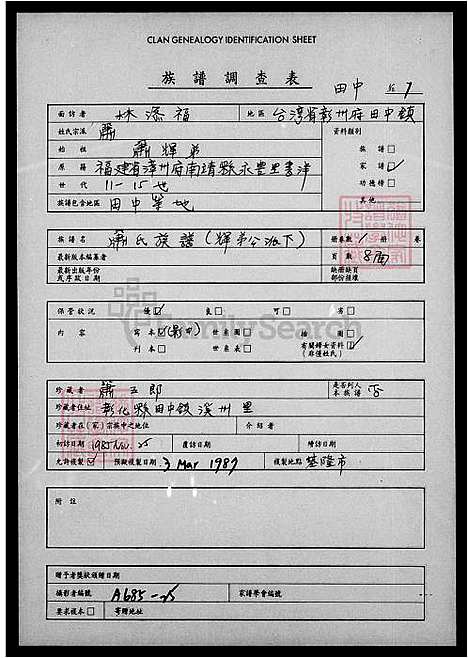 CLAN GENEALOGY IDENTIFICATION SHEET
族譜調查表
田中 7
面訪者 林添福 地區 台湾省彰州府田中鎮
姓氏宗派 蕭 資料類別
始祖 蕭輝弟 族譜□
原籍 福建省漳州府南靖縣永豊里書洋 家譜☑
世代 11-15世 功德榜□
族譜包含地區 田中等地 其他
族譜名 蕭氏族譜(輝弟公派下) 册卷數 1 册 卷
最新版本編纂者 頁數 8面
最新出版年份或序跋日期 缺册缺頁部份摧壞
保管狀況 優☑ 良□ 可□ 劣□
內容 寫本☑(影印) 世系圖□ 插圖□
刊本□ 世系表□ 有關婦女資料☑(非僅姓氏)
FamilySearch
珍藏者 蕭五郎 是否列入本族譜 否
珍藏者住址 彰化縣田中鎮溪州里
珍藏者在(家)宗族中之地位 介紹者
初訪日期 1985 Nov. 25 覆訪日期 增訪日期
允許複製☑ 預擬複製日期 3 Mar 1987 複製地點 基隆市
附註
贈予者獎狀頒贈日期
攝影者編號 A685-25 家譜學會編號
要求複本□ 寄贈地址